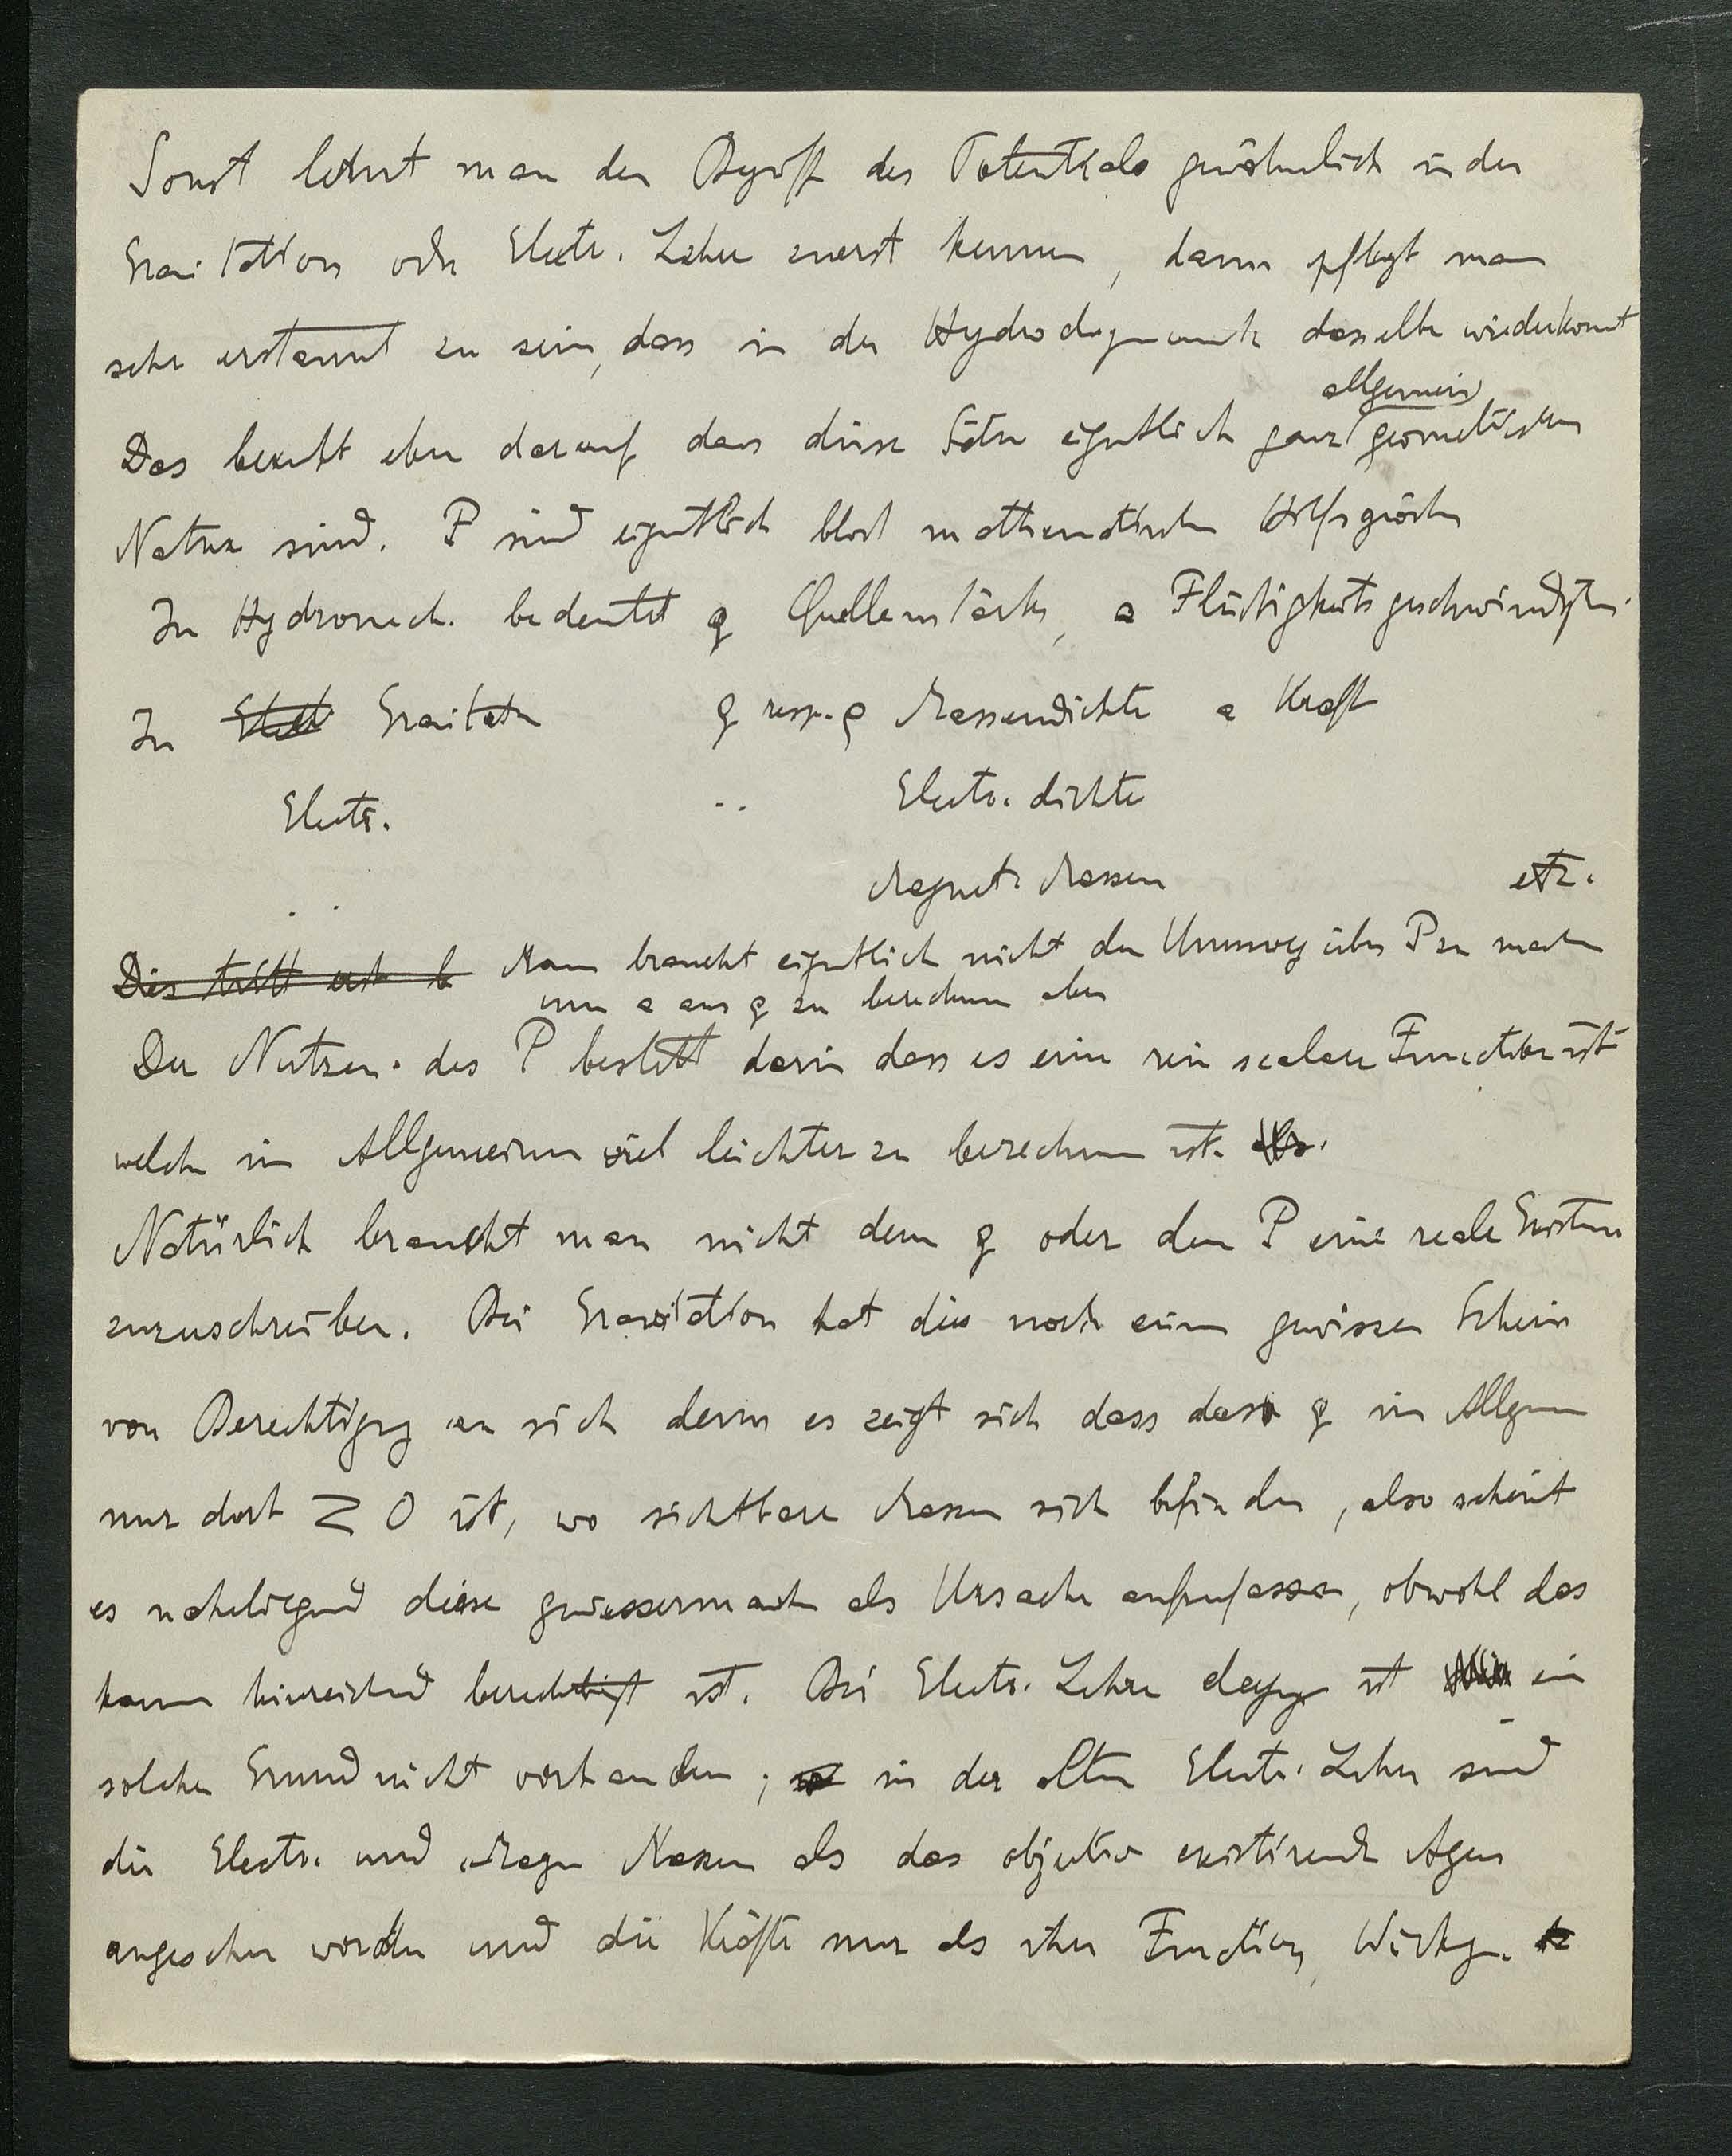 Sonst lehrt man den Begriff des Potentials gewöhnlich in der
Gravitation oder Electr. Lehre zuerst kennen, dann pflegt man
sehr erstaunt zu sein, dass in der Hydrodynamik dasselbe wiederkomt
allgemein
Das beruht eben darauf dass diese Sätze eigentlich ganz geometrischen
Natur sind. P sind eigentlich blos mathematische Hilfsgrösen
In Hydromech. bedeutet q Quellenstärke, a Flüssigkeitsgeschwindigk.
In Elect Gravitatn q resp. ρ Massendichte a Kraft
Electr. .. Electr. dichte
Magnet. Massen etc.
Dies tritt erst b Man braucht eigentlich nicht den Umweg über P zu machen
um a aus q zu berechnen aber
Der Nutzen des P besteht darin dass es eine rein scalare Function ist
welche im Allgemeinen viel leichter zu berechnen ist. als.
Natürlich braucht man nicht dem q oder dem P eine reale Existenz
zuzuschreiben. Bei Gravitation hat dies noch einen gewissen Schein
von Berechtigg an sich denn es zeigt sich dass das q im Allgem
nur dort ≷ 0 ist, wo sichtbare Massen sich befinden, also scheint
es naheliegend diese gewissermassen als Ursache aufzufassen, obwohl das
kaum hinreichend berechtigt ist. Bei Electr. Lehre dagegen ist ein
solcher Grund nicht vorhanden; in der alten Electr. Lehre sind
die Electr. und Magn Massen als das objectiv existirende Agens
angesehen worden und die Kräfte nur als ihre Function, Wirkg.